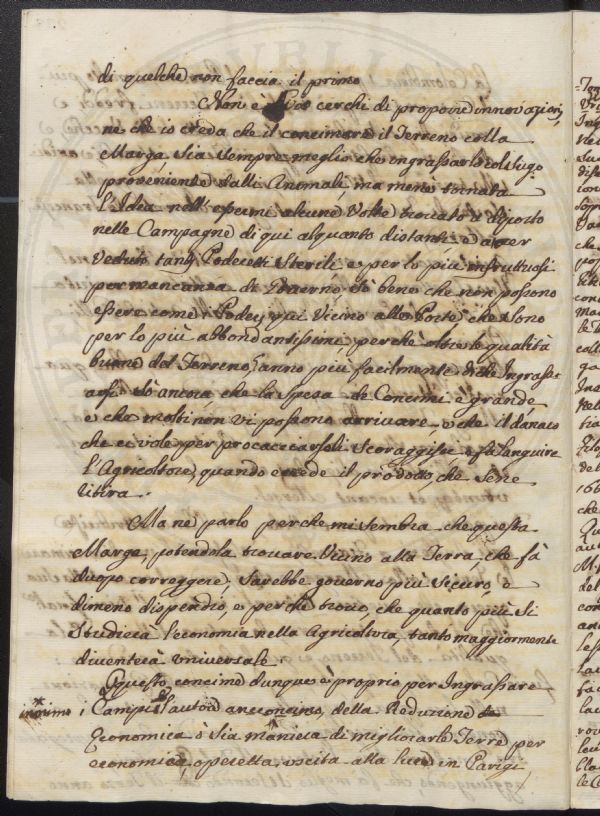 di quelche non faccia il primo
Non è cerchi di proporre innovazioni,
ne che io creda che il concimare il Terreno colla
Marga sia sempre meglio che ingrassarlo col sugo
proveniente dalli Animali, ma mene tornata
l'Idea nell' alcune Volte trovato a diporto
nelle Campagne di qui alquanto distanti e aver
Veduto tanti Poderetti Sterili, e per lo più infruttuosi
per mancanza di Governo, Sò bene che non possono
essere come i Poderi qui Vicino alle Porte, che sono
per lo più abbondantissimi perchè oltre le qualità
buone del Terreno, anno più facilmente Ingrasso
Sò ancora, che la Spesa de Concimi è grande
e che molti non vi possono arrivare, e che il danaro
che ci vole per procacciarseli scoraggisce, e fà languire
l'Agricoltore, quando eccede il prodotto, che Se ne
ritira.
Ma ne parlo perche mi sembra che questa
Marga, potendola trovare Vicino alla Terra, che fà
duopo correggere, sarebbe governo più sicuro, e
dimeno dispendio, e perchè trovo, che quanto più Si
Studierà l'economia nella Agricoltura, tanto maggiormente
diventerà universale.
Questo concime dunque è proprio per Ingrassare
i Campi; l'autore anonimo, della Riduzione
Economica ò sia maniera di migliorar le Terre per
economia, operetta, uscita alla luce in Parigi,